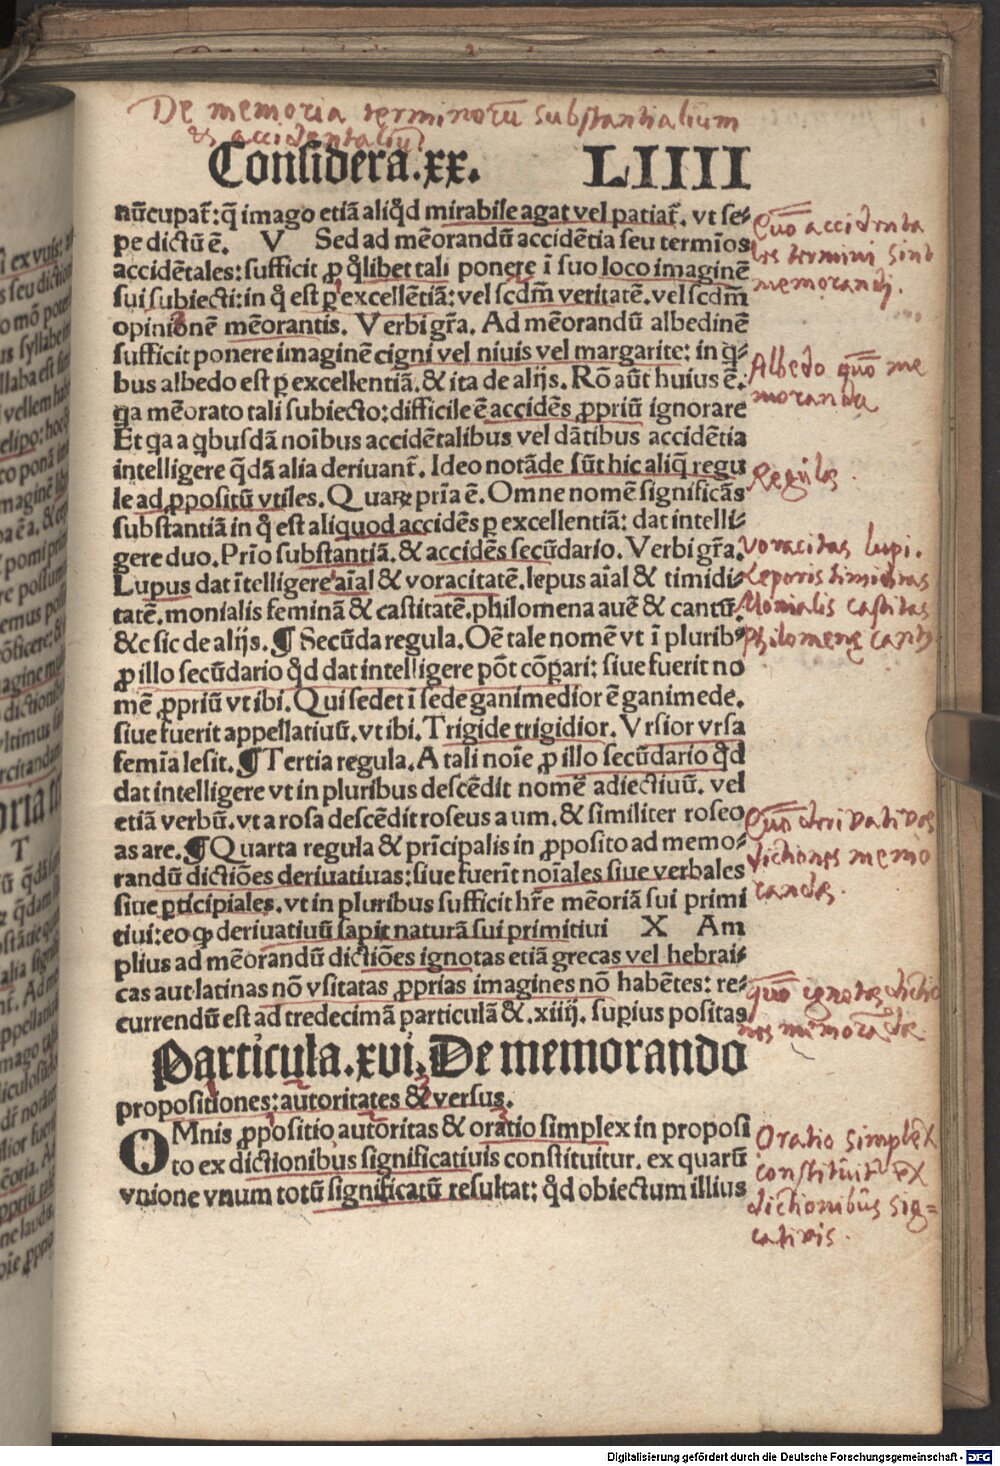 De memoria terminorū substantialium
& accidentaliū
Considera.xx. LIIII
nūcupat᷑: q̄ imago etiā aliqd̄ mirabile agat vel patiat᷑. vt se⸗
pe dictū ē. V Sed ad mēorandū accidētia seu termīos
accidētales: sufficit ꝓ qͦlibet tali ponere ī suo loco imaginē
sui subiecti: in qͦ est ꝑ excellētiā: vel scdm̄ veritatē. vel scdm̄
opinionē mēorantis. Verbi gr̄a. Ad mēorandū albedinē
sufficit ponere imaginē cigni vel niuis vel margarite: in q̄⸗
bus albedo est ꝑ excellentiā. & ita de alijs. Rō aūt huius ē.
qa mēorato tali subiecto: difficile ē accidēs ꝓpriū ignorare
Et qa a qbusdā noībus accidētalibus vel dātibus accidētia
intelligere q̄dā alia deriuant᷑. Ideo notāde sūt hic aliq̄ regu
le ad ꝓpositū vtiles. Quarꝝ pr̄ia ē. Omne nomē significās
substantiā in qͦ est aliquod accidēs ꝑ excellentiā: dat intelli⸗
gere duo. Prīo substantiā. & accidēs secūdario. Verbi gr̄a.
Lupus dat ītelligere aīal & voracitatē. lepus aīal & timidi⸗
tatē. monialis feminā & castitatē. philomena auē & cantū
&c sic de alijs. ¶ Secūda regula. Oē tale nomē vt ī plurib⁹
ꝓ illo secūdario qd̄ dat intelligere pōt cōpari: siue fuerit no
mē ꝓpriū vt ibi. Qui sedet ī sede ganimedior ē ganimede.
siue fuerit appellatiuū. vt ibi. Trigide trigidior. Vrsior vrsa
femīa lesit. ¶ Tertia regula. A tali noīe ꝓ illo secūdario qd̄
dat intelligere vt in pluribus descēdit nomē adiectiuū. vel
etiā verbū. vt a rosa descēdit roseus a um. & similiter roseo
as are. ¶ Quarta regula & prīcipalis in ꝓposito ad memo⸗
randū dictiōes deriuatiuas: siue fuerīt noīales siue verbales
siue ꝑticipiales. vt in pluribus sufficit hr̄e mēoriā sui primi
tiui: eo ꝙ deriuatiuū sapit naturā sui primitiui X Am
plius ad mēorandū dictiōes ignotas etiā grecas vel hebrai⸗
cas aut latinas nō vsitatas ꝓprias imagines nō habētes: re⸗
currendū est ad tredecimā particulā &. xiiij. supius positas
Particula.xvi. De memorando
propositiones: autoritates & versus.
OMnis ꝓpositio autoritas & oratio simplex in proposi
to ex dictionibus significatiuis constituitur. ex quarū
vnione vnum totū significatū resultat: qd̄ obiectum illius
Quō accidenta
les termini sint
memorandj.
Albedo quō me
moranda
Regulæ.
Voracitas lupi.
Leporis timiditas
Monialis castitas
Philomenę cant⁹
Quō derivativas
dictiones memo
randæ.
quō ignotas dictio
nes memorādæ
Oratio simplex
constituit᷑ ex
dictionibus sig=
cativis.
Digitalisierung gefördert durch die Deutsche Forschungsgemeinschaft - DFG